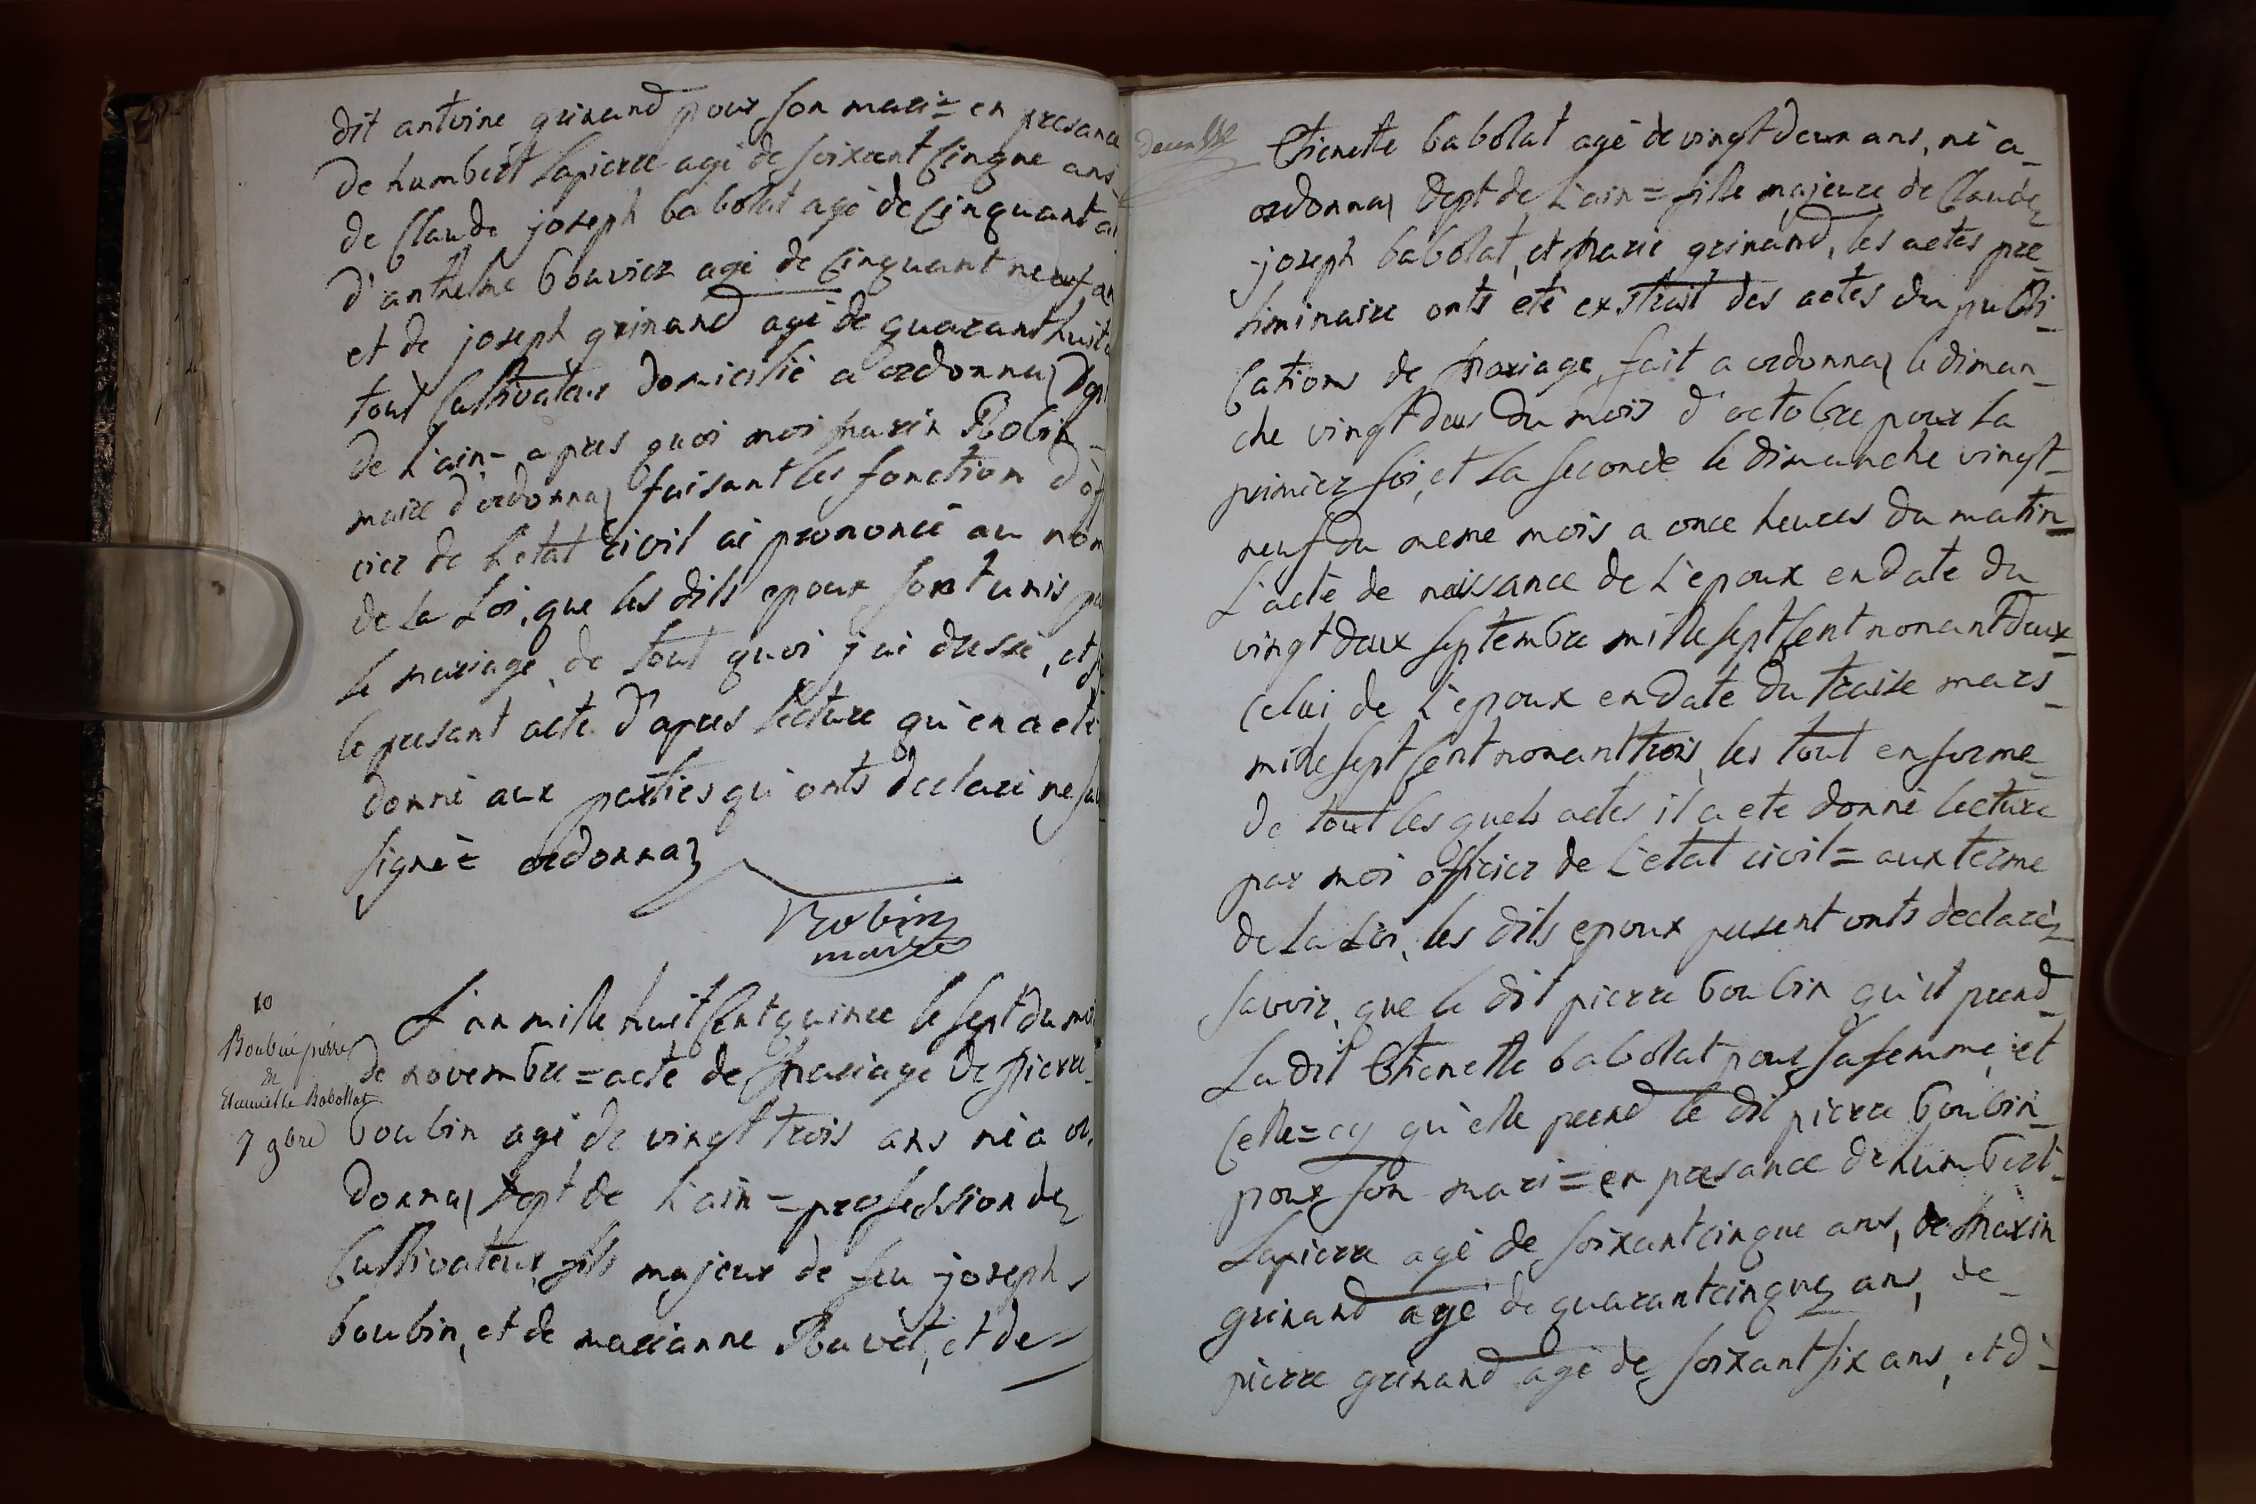 dit antoine grinand pour son mari = en presance
de humbert Lapierre agé de soixant cinque ans
de Claude joseph babolat agé de cinquant
d'anthelme bouvier agé de cinquant neuf an
et de joseph grinand agé de quarant huit
tout Cultivateur domicilié a ordonnaz Dept
de L'ain = apres quoi moi marin Robin
maire d'ordonnaz faisant les fonction d'offi
cier de L'etat civil ai prononcé au nom
de la Loi, que les dits epoux sont unis
le mariage de tout quoi j'ai dressé, et
le presant acte d'apres lecture qu'en a eté
donné aux parties qui onts declaré ne
signé = ordonnaz
Robin
maire
10
Boubin pierre
et
Etiennette Babollat
7 9bre
L'an mille huit sent quince le sept du moi
de novembre = acte de mariage de pierre
boubin agé de vingt trois ans né a or
donnaz Dept de L'ain = profession de
Cultivateur, fils majeur de feu joseph
boubin, et de marianne Ravet, et de =
Etienette babolat agé de vingt deux ans, né a
ordonnaz Dept de L'ain = fille majeure de Claude
joseph babolat, et marie grinand, les actes pre
liminaire onts eté exstrait des actes du publi
cations de mariage fait a ordonnaz le diman
che vingt deus du mois d'octobre pour la
primier foi, et la seconde le dimanche vingt
neuf du meme mois a once heures du matin
L'acte de naissance de L'epoux en date du
vingt deux septembre mille sept sent nonant deux
celui de L'epoux en date du traise mars
mille sept sent nonant trois, les tout en forme
de tout les quels actes il a ete donné lecture
par moi officier de L'etat civil = aux terme
de la Loi, les dits epoux present onts declaré
savoir, que le dit pierre boubin qu'il prend
La dit Etienette babolat pour sa femme, et
celle = cy qu'elle prend le dit pierre boubin
pour son mari = en presance de humbert
Lapierre agé de soixant cinque ans, de marin
grinand agé de quarant cinque ans, de
pierre grinand agé de soixant six ans, et d'